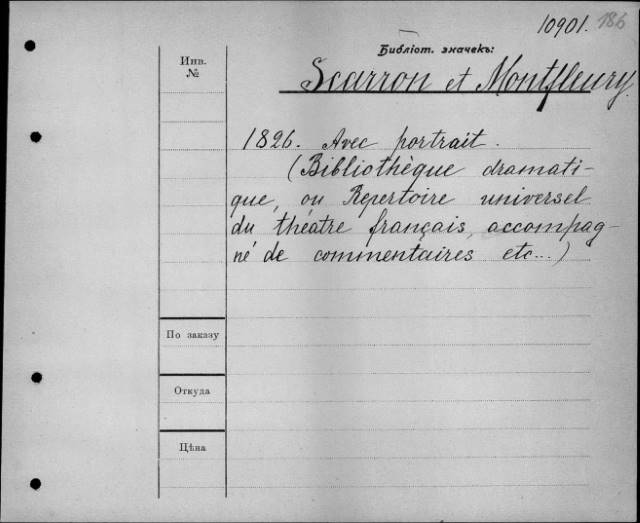 10901. 186
Библіот. значекъ:
Инв.
№
Scarron et Montfleury.
1826. Avec portrait.
(Bibliothèque dramati-
que, ou Repertoire universel
du théatre français, accompag-
né de commentaires etc...)
По заказу
Откуда
Цѣна